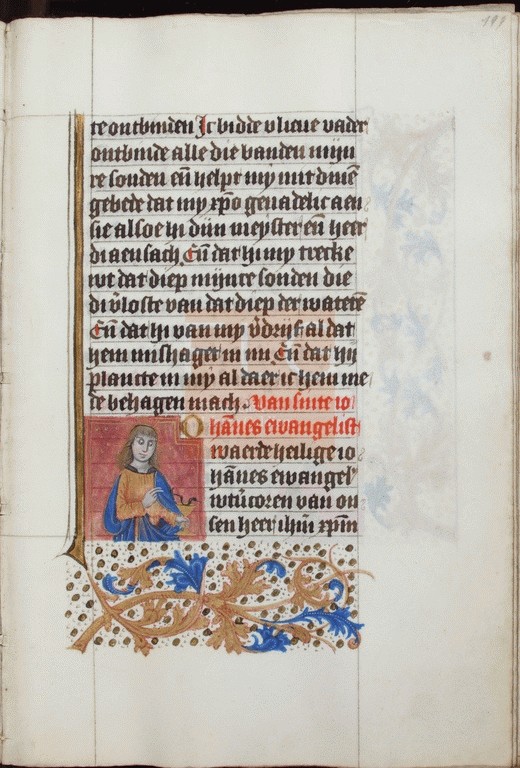 199
te ontbinden Ic bidde u lieue vader
ontbinde alle die banden mijn
re sonden eñ helpt my mit dinē
gebede dat my xpo genadelic aen
sie alsoe hi dijn meyster eñ heer
di aensach. Eñ dat hi my trecke
wt dat diep mijnre sonden die
di v̄loste van dat diep der waterē
Eñ dat hi van my v̄drijf al dat
hem mishaget in mi Eñ dat hij
plancte in my al daer ic hem me
de behagen mach. Van sinte io
hānes ewangelist
O waerde heilige io
hānes ewangel'
wtūcoren van on
sen heer ihm xpm